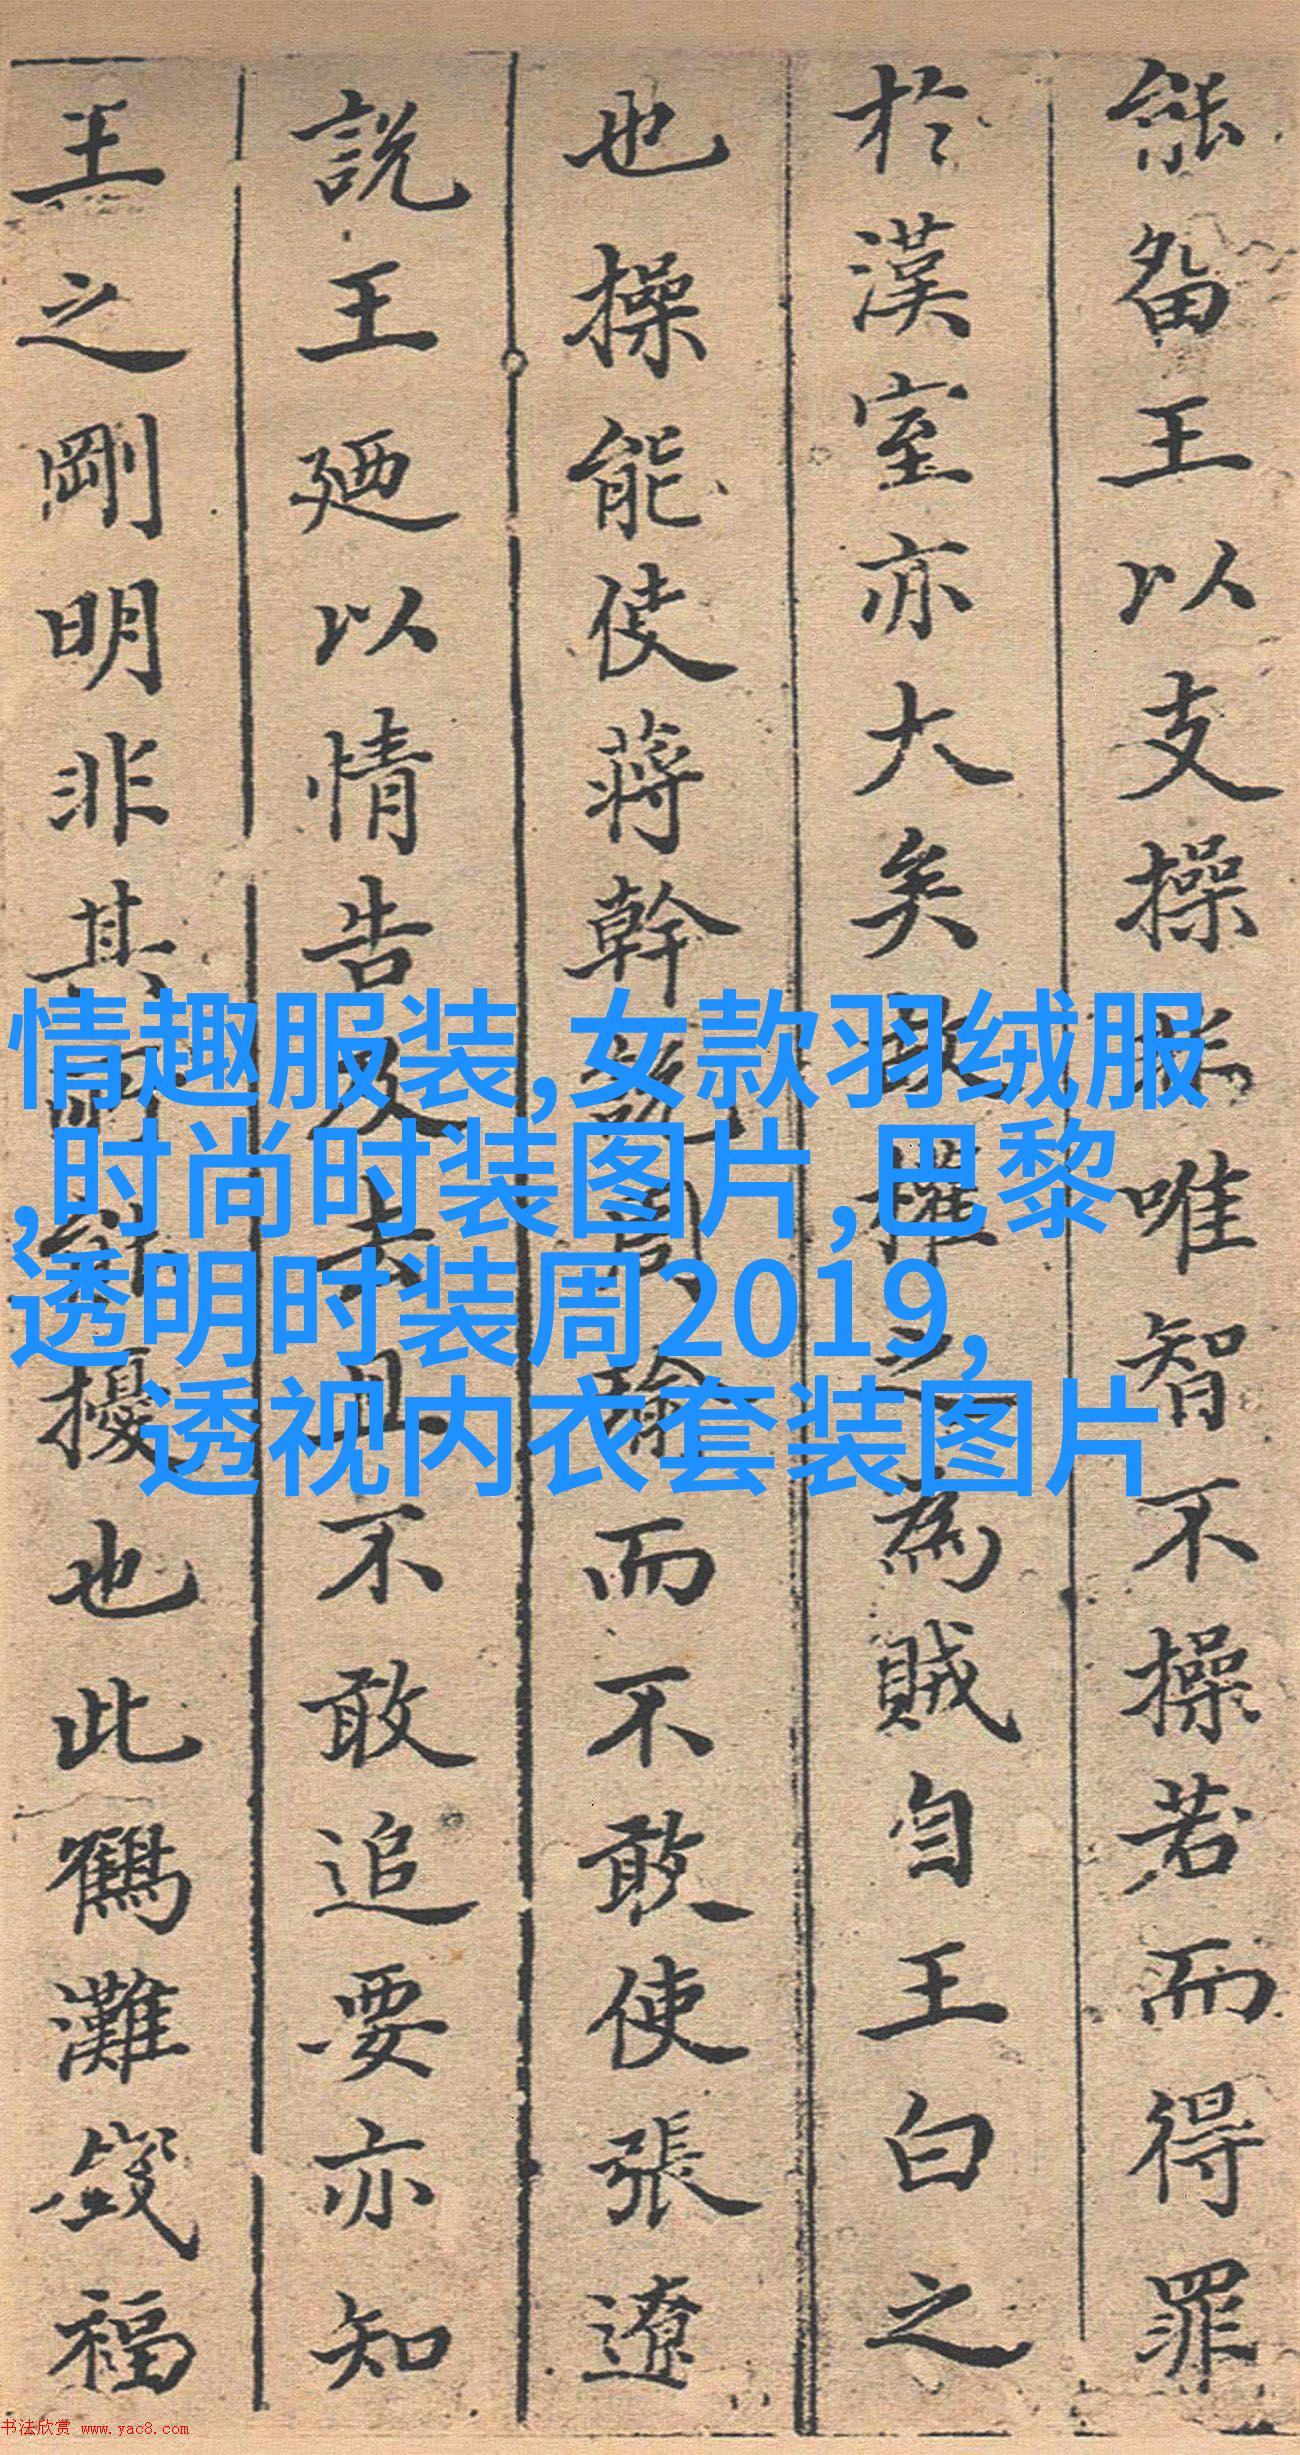 能留王以支操唯智不操若而得罪
於漢室亦大矣權之為賊自王白之
也操能使蔣幹說周瑜而不敢使張遼
說王廼以情告及去且不敢追要亦知
王之剛明非其能擾也此鶴灘福
情趣服装,女款羽绒服
,时尚时装图片,巴黎
透明时装周2019,
透视内衣套装图片
书法欣赏 www.yac8.com